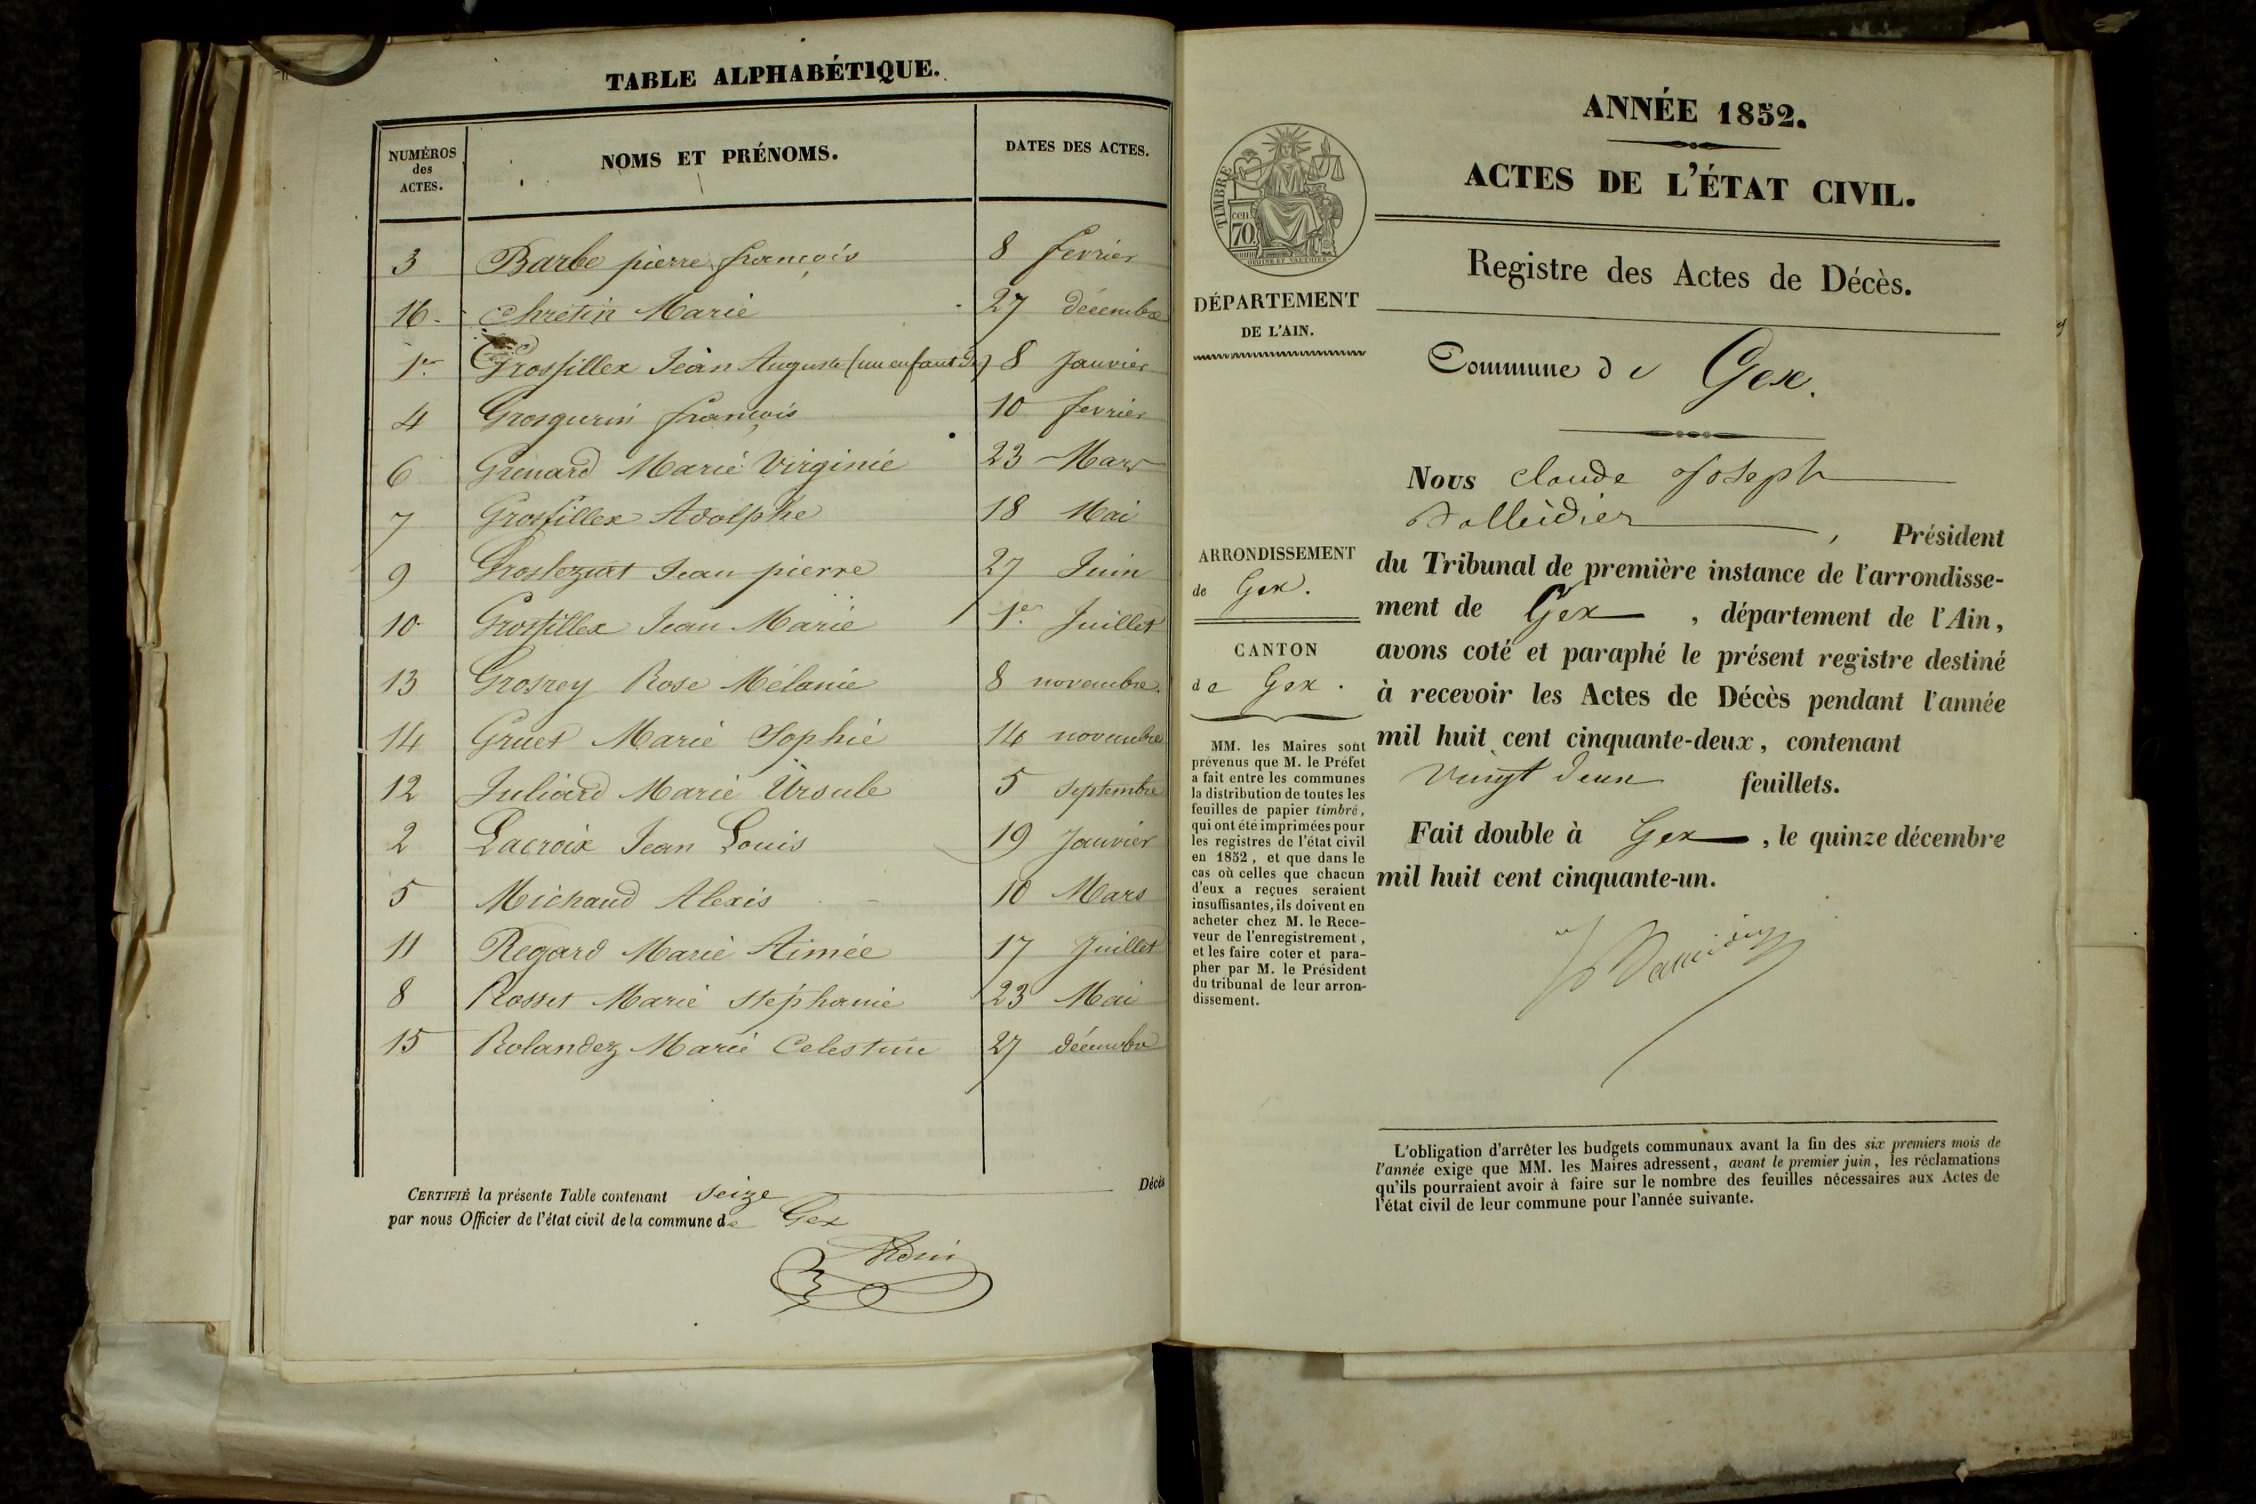 TABLE ALPHABÉTIQUE.
NUMÉROS des ACTES. NOMS ET PRÉNOMS. DATES DES ACTES.
3 Barbe pierre françois 8 fevrier
16 Chretin Marie 27 décembre
1er Grosfillex Jean Auguste (un enfant de) 8 Janvier
4 Grosgurin françois 10 fevrier
6 Grenard Marie Virginie 23 Mars
7 Grosfillex Adolphe 18 Mai
9 Jean pierre 27 Juin
10 Grosfillex Jean Marie 1er Juillet
13 Grosrey Rose Mélanie 8 novembre.
14 Gruet Marie Sophie 14 novembre
12 Juliard Marie Ursule 5 septembre
2 Lacroix Jean Louis 19 Janvier
5 Michaud Alexis 10 Mars
11 Regard Marie Aimée 17 Juillet
8 Rosset Marie Stéphanie 23 Mai
15 Rolandez Marie Celestine 27 décembre
CERTIFIÉ la présente Table contenant seize Décès
par nous Officier de l'état civil de la commune de Gex
ANNÉE 1852.
ACTES DE L'ÉTAT CIVIL.
Registre des Actes de Décès.
TIMBRE
cen.
70
DÉPARTEMENT
DE L'AIN.
Commune de Gex.
ARRONDISSEMENT
de Gex.
CANTON
de Gex.
MM. les Maires sont
prévenus que M. le Préfet
a fait entre les communes
la distribution de toutes les
feuilles de papier timbré,
qui ont été imprimées pour
les registres de l'état civil
en 1852, et que dans le
cas où celles que chacun
d'eux a reçues seraient
insuffisantes, ils doivent en
acheter chez M. le Rece-
veur de l'enregistrement,
et les faire coter et para-
pher par M. le Président
du tribunal de leur arron-
dissement.
Nous Claude Joseph
, Président
du Tribunal de première instance de l'arrondisse-
ment de Gex, département de l'Ain,
avons coté et paraphé le présent registre destiné
à recevoir les Actes de Décès pendant l'année
mil huit cent cinquante-deux, contenant
Vingt deux feuillets.
Fait double à Gex, le quinze décembre
mil huit cent cinquante-un.
L'obligation d'arrêter les budgets communaux avant la fin des six premiers mois de
l'année exige que MM. les Maires adressent, avant le premier juin, les réclamations
qu'ils pourraient avoir à faire sur le nombre des feuilles nécessaires aux Actes de
l'état civil de leur commune pour l'année suivante.